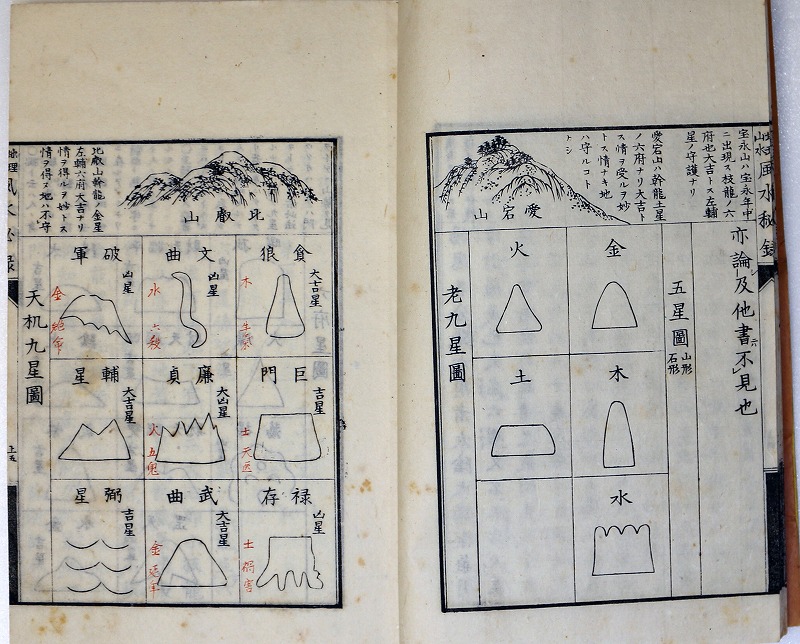 風水秘録
宝永山ハ宝永年中
ニ出現ス枝龍ノ六
府也大吉トス左輔
星ノ守護ナリ
愛宕山ハ幹龍土星
ノ六府ナリ大吉ト
ス情ヲ受ルヲ妙
トス情ナキ地
ハ守ルコト
トシ
愛宕山
亦論及他書不見也
五星圖
山形
石形
金
木
水
火
土
老九星圖
比叡山幹龍ノ金星
左輔六府大吉ナリ
情ヲ得ルヲ妙トス
情ヲ得ス地ハ不守
比叡山
貪狼
大吉星
木
生氣
巨門
吉星
土
天医
禄存
凶星
土
禍害
文曲
凶星
水
六殺
廉貞
大凶星
火
五鬼
武曲
大吉星
金
延年
破軍
凶星
金
絶命
輔星
大吉星
弼星
吉星
天机九星圖
地理風水秘録
上五